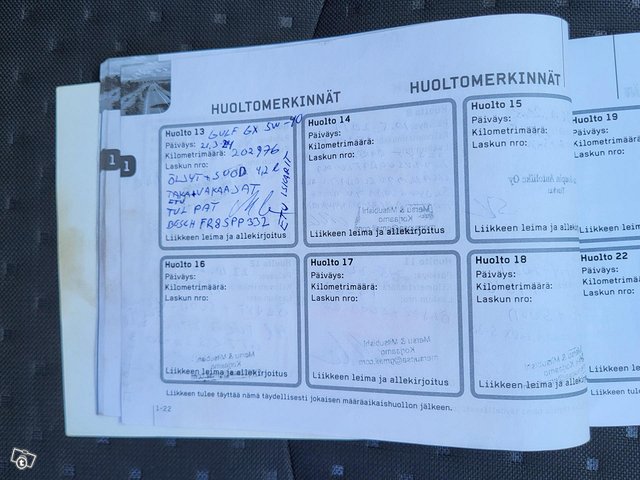 HUOLTOMERKINNÄT
HUOLTOMERKINNÄT
Huolto 13 GULF GX 5W-40
Päiväys: 21.3-24
Kilometrimäärä: 202976
Laskun nro:
ÖLJYT + SUOD 4,2 L
TAKA+VAKAAJAT
ETU
TULPAT
BOSCH FR8SPP332
ETU ISKARIT
Liikkeen leima ja allekirjoitus
Huolto 14
Päiväys:
Kilometrimäärä:
Laskun nro:
Liikkeen leima ja allekirjoitus
Huolto 15
Päiväys:
Kilometrimäärä:
Laskun nro:
Liikkeen leima ja allekirj
Huolto 19
Päiväys:
Kilometrimäärä:
Laskun nro:
Liikkeen le
Huolto 16
Päiväys:
Kilometrimäärä:
Laskun nro:
Liikkeen leima ja allekirjoitus
Huolto 17
Päiväys:
Kilometrimäärä:
Laskun nro:
Liikkeen leima ja allekirjoitus
Huolto 18
Päiväys:
Kilometrimäärä:
Laskun nro:
Liikkeen leima ja allekirj
Huolto 22
Päiväys:
Kilometrimäärä:
Laskun nro:
Liikkeen le
Liikkeen tulee täyttää nämä täydellisesti jokaisen määräaikaishuollon jälkeen.
Liikkeen tulee täyt
1-22
1
1